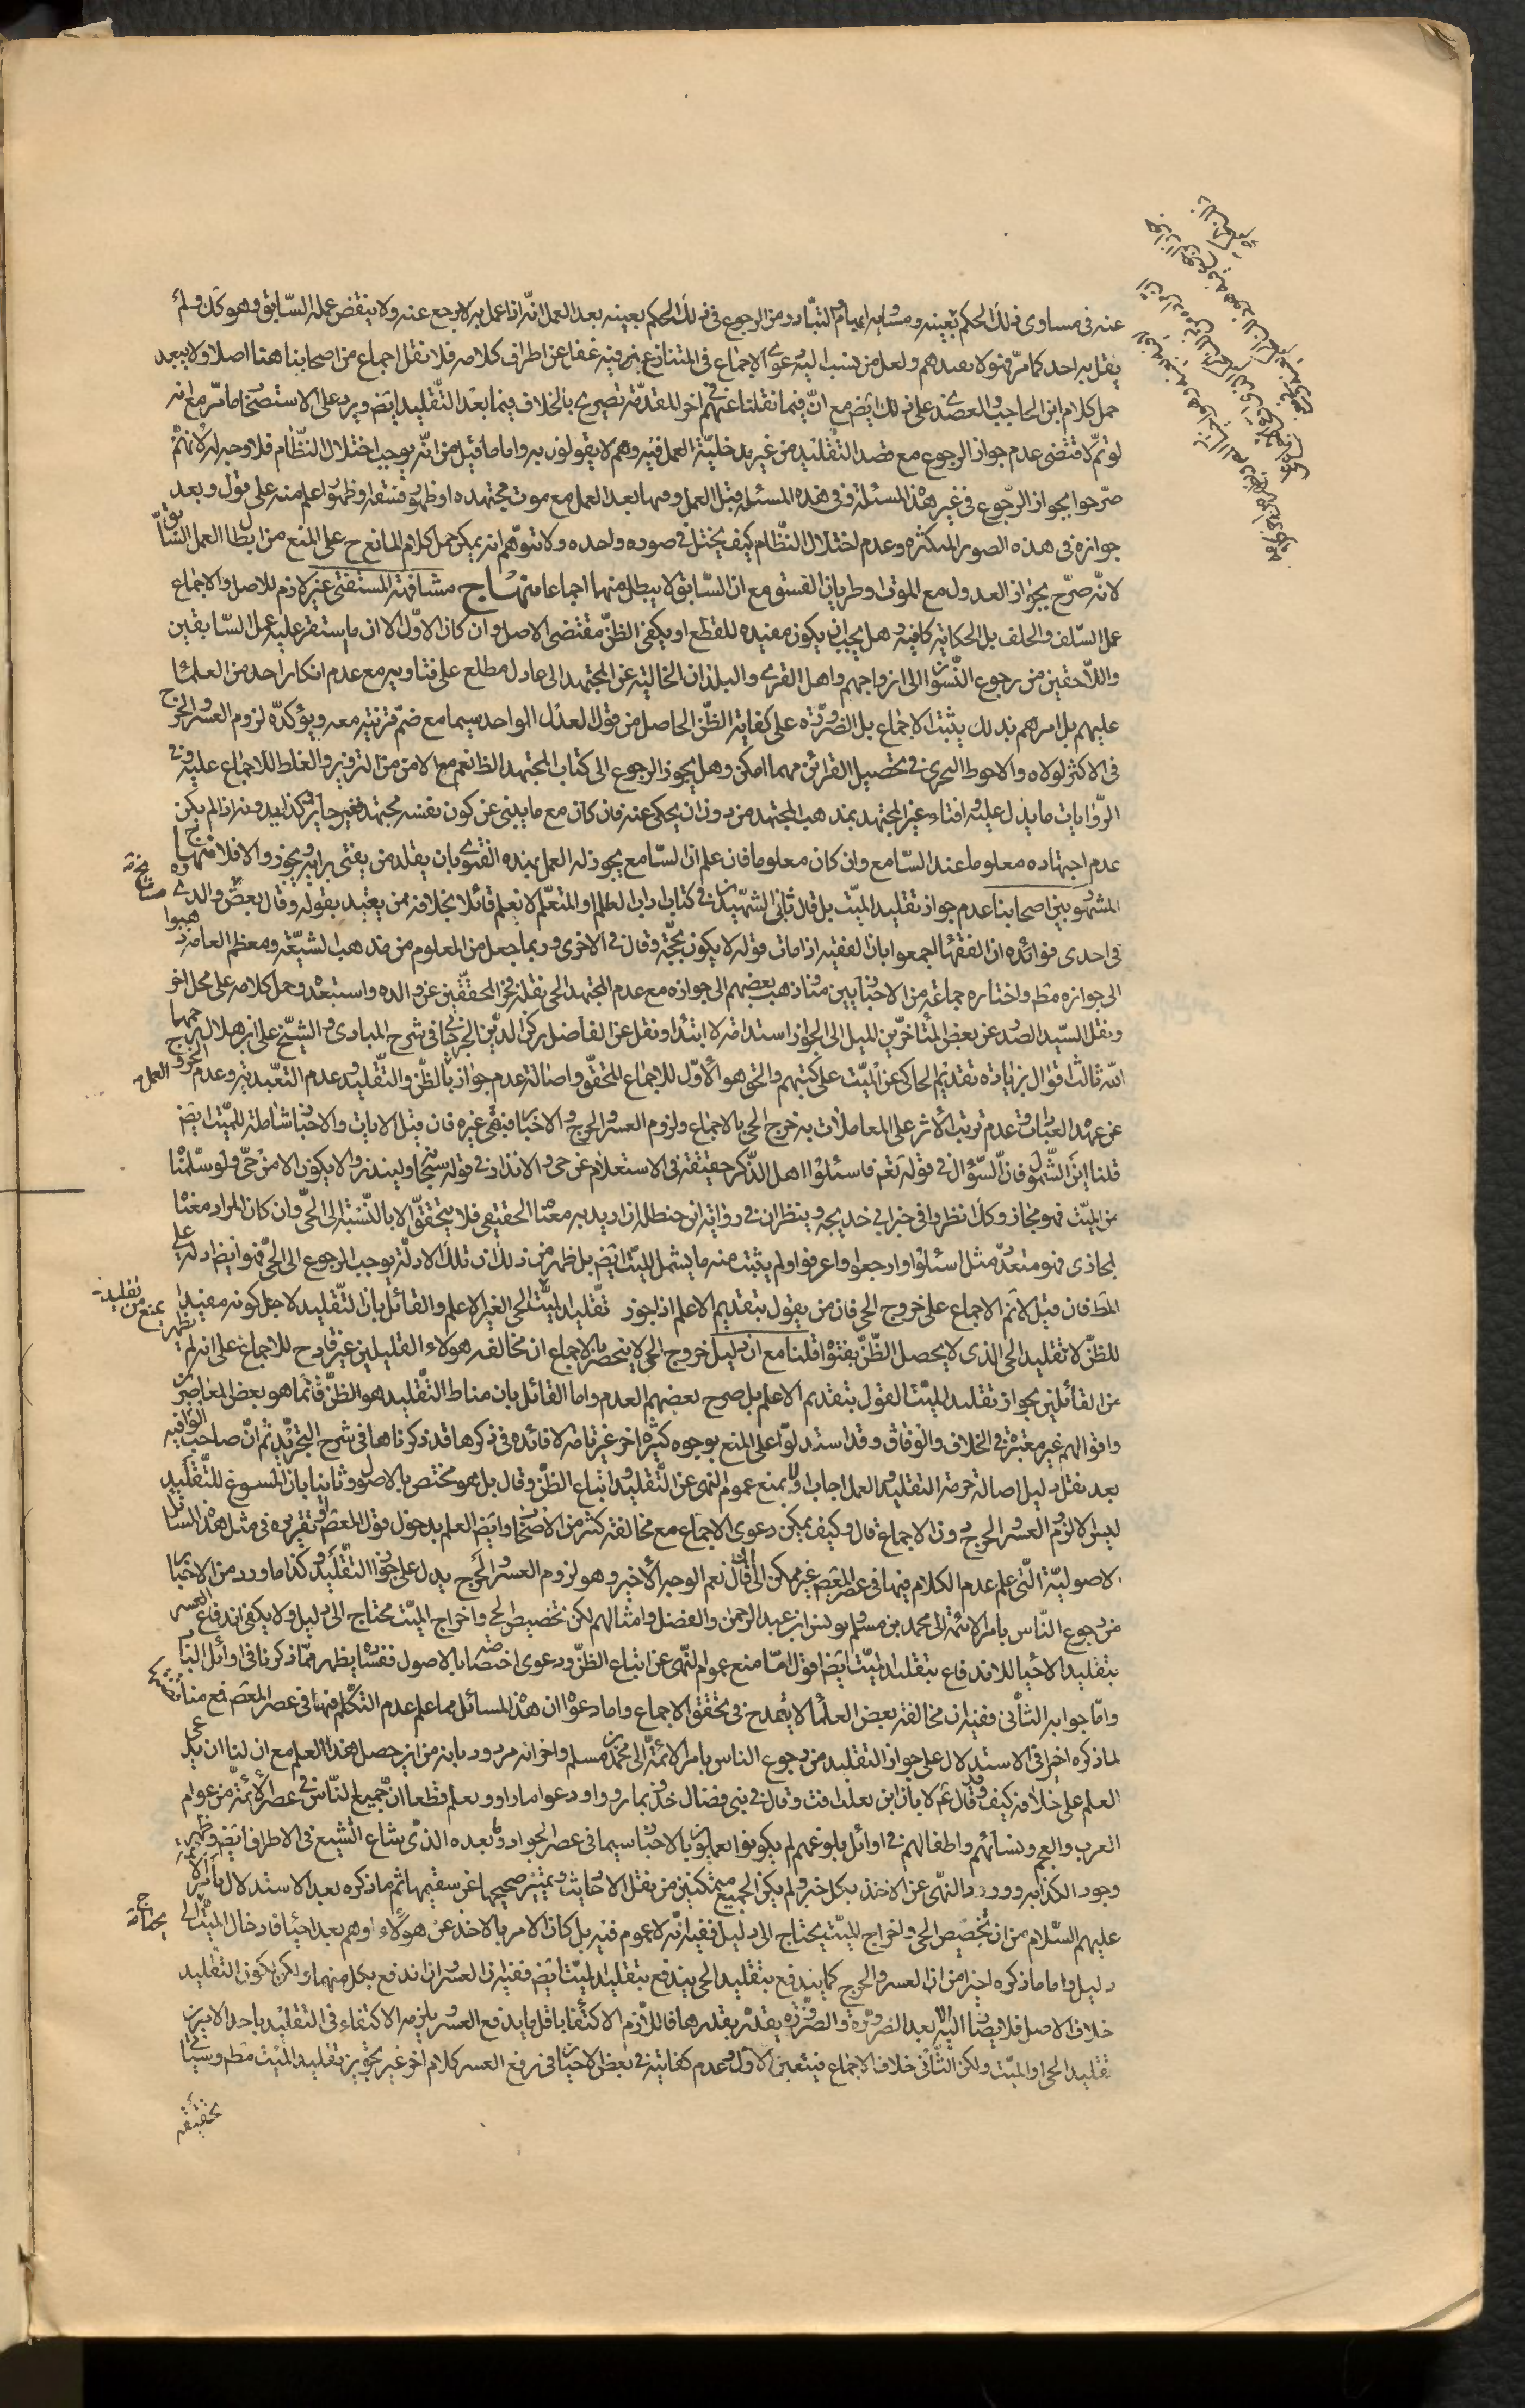 عنه فى مساوى ذلك الحكم بعينه ومشابه اممام والتبادر من الرجوع فى ذلك الحكم بعينه بعد العمل انه اذا عمل به لا يرجع عنه ولا ينقض عمله السّابق وهو كك ولم
يقل به احد كما مرّ فهو لا يصدهم ولعل من نسب اليه دعوى الاجماع فى المتنازع فيه غفل عن اطراف كلامه فلا نقل اجماع من اصحابنا ههنا اصلا ولا يبعد
حمل كلام ابن الحاجب والعضدى على ذلك ايضم مع انّ فيما نقلنا عنهم فى اخر المقدّمة تصريح بالخلاف فيما بعد التّقليد ايضم ويرد على الاستصحاب ما مرّ مع انه
لو تمّ لاقتضى عدم جواز الرجوع مع قصد التّقليد من غير مدخليّة العمل فيه وهم لا يقولون به واما ما قيل من انّه يوجب اختلال النّظام فلا وجه له لانهم
صرّحوا بجواز الرّجوع فى غير هذه المسئلة وفى هذه المسئلة قبل العمل وفيما بعد العمل مع موت مجتهده او ظهور فسقه او ظهور اعلم منه على قول وبعد
جوازه فى هذه الصور المتكثره وعدم اختلال النّظام كيف يختل فى صوره واحده ولا تتوهّم انه يمكن حمل كلام المانع ح على المنع من ابطال العمل السّابق
لانّه صرّح بجواز العدول مع الموت وطريان الفسق مع ان السّابق لا يبطل منهما اجماعا منهاج مشافهة المستفتى غير لازم للاصل والاجماع
عمل السّلف والخلف بل الحكاية كافيه وهل يجب ان يكون مفيده للقطع او يكفى الظنّ مقتضى الاصل وان كان الاوّل الا ان ما يستقر عليه عمل السّابقين
واللّاحقين من رجوع النّسوان الى ازواجهم واهل القرى والبلدان الخالية عن المجتهد الى عادل مطلع على فتاويه مع عدم انكار احد من العلماء
عليهم بل امرهم بذلك يثبت الاجماع بل الضّروره على كفاية الظّن الحاصل من قول العدل الواحد سيما مع ضمّ قرينة معه ويؤكدّه لزوم العسر والحرج
فى الاكثر لولاه والاحوط التحرى فى تحصيل القرائن مهما امكن وهل يجوز الرجوع الى كتاب المجتهد الظ نعم مع الامن من التزوير والغلط للاجماع عليه وفى
الرّوايات ما يدل عليه افتاء غير المجتهد بمذهب المجتهد من دون ان يحكى عنه فان كان مع ما ينبى عن كون نفسه مجتهدا فغير جايز وكذا بدونه اذا لم يكن
عدم اجتهاده معلوما عند السّامع وان كان معلوما فان علم ان السّامع يجوز له العمل بهذه الفتوى بان يقلد من يفتى برايه يجوز والا فلا منهاج
المشهور بين اصحابنا عدم جواز تقليد الميّت بل قال ثانى الشهيدين فى كتاب اداب العالم والمتعلّم لا نعلم قائلا بخلافه ممن يعتد بقوله وقال بعض والدى
فى احدى فوائده ان الفقهاء اجمعوا بان الفقيه اذا مات قوله لا يكون بحجّة وقال فى الاخرى وربما جعل من المعلوم من مذهب الشيّعة ومعظم العامّة ذهبوا
الى جوازه مطم واختاره جماعة من الاخباريين منا وذهب بعضهم الى جوازه مع عدم المجتهد الحى نقله فخر المحققّين عن والده واستبعده وحمل كلامه على محل اخر
ونقل السّيد الصّدر عن بعض المتأخرّين الميل الى الجواز استدامة لا ابتداء ونقل عن الفاضل ركن الدّين الجرجانى فى شرح المبادى والشّيخ على ابن هلال
الله ثالث اقوال بزيادة تقديم الحاكى عن الميّت على كتبهم والحق هو الاوّل للاجماع المحقّق واصالة عدم جواز العمل بالظّن والتّقليد وعدم التعّبد به وعدم الخروج
عن عهدة العبادات وعدم ترتب الاثر على المعاملات به خرج الحى بالاجماع ولزوم العسر والحرج والاخبار فيبقى غيره فان قيل الايات والاخبار شاملة للميّت ايضم
قلنا اين الشّمول فانّ السّؤال فى قوله تعم فاسئلوا اهل الذّكر حقيقة فى الاستعلام عن حى والانذار فى قوله سبحانه ولينذروا لا يكون الا من حىّ ولو سلّمنا
من الميّت فهو مجاز وكذا انظروا فى خبر ابى خديجه وينظران فى رواية ابن حنظله ان اريد به معناه الحقيقى فلا يتحققّ الا بالنّسبة الى الحىّ وان كان المراد معناه
المجازى فهو متعدّد مثل اسئلوا وارجعوا واعرفوا ولم يثبت منه ما يشمل الميّت ايضم بل ظهر من ذلك ان تلك الادلّة يوجب الرجوع الى الحىّ فهو ايضا دلة على
المط فان قيل لا نم الاجماع على خروج الحى فان من يقول بتقديم الاعلم اذا جوز تقليد الميّت لا الحى الغير الاعلم والقائل بان التّقليد لاجل كونه مفيدا
للظنّ لا تقليد الحى الذى لا يحصل الظّنّ بفتواه قلنا مع ان دليل خروج الحى لا ينحصر بالاجماع ان مخالفه هولاء القليلين غير قادح للاجماع على انه لم يظهر
من القائلين بجواز تقليد الميّت القول بتقديم الاعلم بل صرح بعضهم العدم واما القائل بان مناط التّقليد هو الظنّ فانّما هو بعض المعاصرين
واقوالهم غير معتبرة فى الخلاف والوفاق وقد استدلوّا على المنع بوجوه كثيره اخر غير تامّة لا فائده فى ذكرها قد ذكرناها فى شرح التجريد ثم انّ صاحب الوافيه
بعد نقل دليل اصالة حرمة التقليد والعمل اجاب اولا بمنع عموم النّهى عن التّقليد واتباع الظنّ وقال بل هو مختص بالاصول وثانيا بان المسوغ للتّقليد
ليس الا لزوم العسر والحرج دون الاجماع قال وكيف يمكن دعوى الاجماع مع مخالفة كثير من الاصحاب وايضم العلم بدخول قول المعصم او تقريره فى مثل هذه المسائل
الاصوليّة الّتى علم عدم الكلام فيها فى عصر المعصم غير ممكن الى ان قال نعم الوجه الاخير وهو لزوم العسر والحرج يدل على جواز التّقليد وكذا ما ورد من الاخبار
من رجوع النّاس بامر الائمة الى محمد بن مسلم ويونس ابن عبد الرحمن والفضل وامثالهم لكن تخصيص الحى واخراج الميّت محتاج الى دليل ولا يكفى اندفاع العسر
بتقليد الاحياء لاندفاعه بتقليد الميّت ايضم اقول امّا منع عموم النّهى عن اتباع الظنّ ودعوى اختصاصه بالاصول ففساده يظهر ممّا ذكرنا فى اوائل الباب
وامّا جوابه الثّانى ففيه ان مخالفة بعض العلماء لا يقدح فى تحقق الاجماع واما دعواه ان هذه المسائل مما علم عدم التكلم فيها فى عصر المعصم فمع منافضته
لما ذكره اخيرا فى الاستدلال على جواز التقليد من رجوع الناس بامر الائمّة الى محمد بن مسلم واخوانه مردود بانه من اين حصل هذا العلم مع ان لنا ان ندعى
العلم على خلافه كيف وقد قال عم لابان ابن تغلب افت وقال فى بنى فضال خذوا بما رووا ودعوا ما راوا ونعلم قطعا ان جميع النّاس فى عصر الائمّة من عوام
العرب والعجم ونسائهم واطفالهم فى اوائل بلوغهم لم يكونوا يعملون بالاخبار سيما فى عصر الجواد وما بعده الذى شاع التّشيع فى الاطراف ايضم وظهر
وجود الكذابه وورود النهّى عن الاخذ بكل خبر ولم يكن الجميع متمكنين من نقل الاحاديث وتميّز صحيحها عن سقيمها ثم ما ذكره بعد الاستدلال بامر الائمّة
عليهم السّلام من ان تخصيص الحى واخراج الميّت يحتاج الى دليل ففيه انّه لا عموم فيه بل كان الامر بالاخذ عن هؤلاء وهم بعد احياء فادخال الميّت يحتاج الى
دليل واما ما ذكره اخيرا من ان العسر والحرج كما يندفع بتقليد الحى يندفع بتقليد الميّت ايضم ففيه ان العسر وان اندفع بكل منهما ولكن يكون التقليد
خلاف الاصل فلا يصار اليه الا بعد الضروره والضّروره يقدّر بقدرها فاللّازم الاكتفاء باقل ما يندفع العسر به فيلزم الاكتفاء فى التقليد باحد الامرين
تقليد الحى او الميّت ولكن الثّانى خلاف الاجماع فيتعين الاوّل وعدم كفايته فى بعض الاحيان فى رفع العسر كلام اخر غير تجويز تقليد الميّت مطم وسياتى
تحقيقه